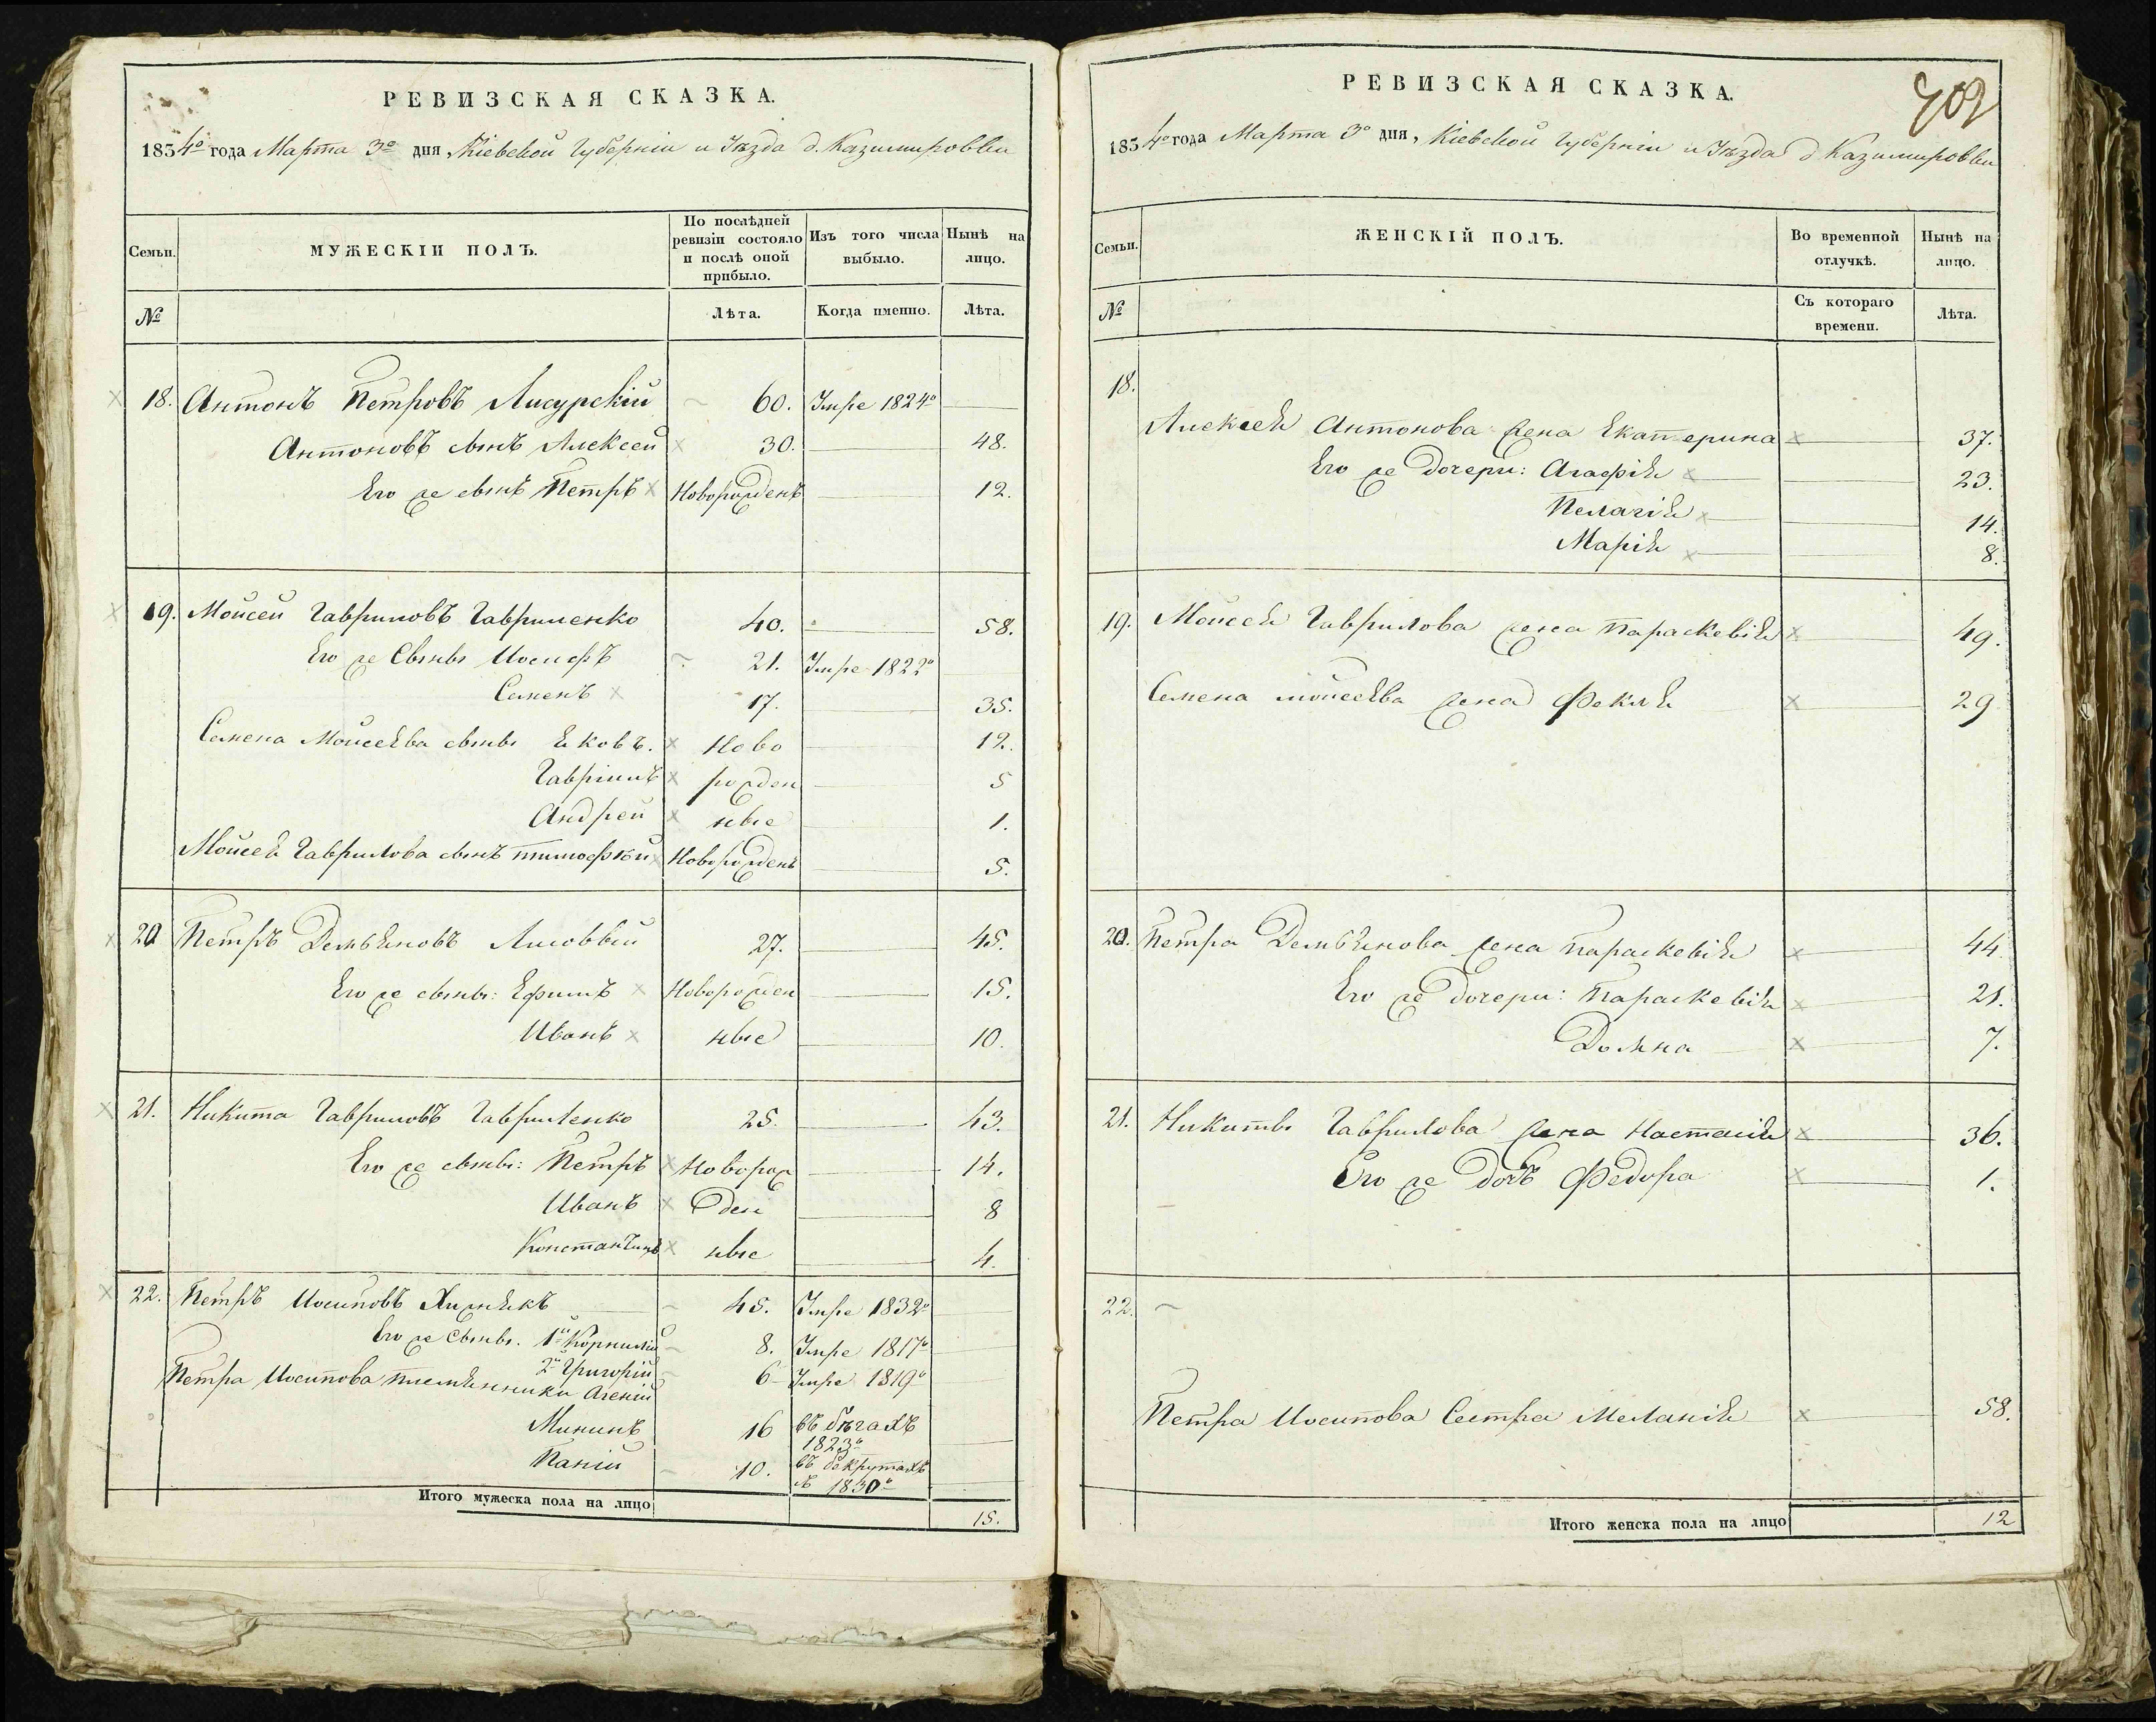 РЕВИЗСКАЯ СКАЗКА.
1834го года Марта 3го дня, Кіевской Губерніи и Уѣзда д. Казимировки
Семьи.
МУЖЕСКІЙ ПОЛЪ.
По послѣдней ревизіи состояло и послѣ оной прибыло.
Изъ того числа выбыло.
Нынѣ на лицо.
№
Лѣта.
Когда именно.
Лѣта.
18. Антонъ Петровъ 60. Умре 1824о
Антоновъ сынъ Алексей 30. 48.
Его же сынъ Петръ Новорожденъ 12.
19. Мойсей Гавриловъ Гавриленко 40. 58.
Его же Сыны Иосифъ 21. Умре 1822о
Семенъ 17. 35.
Семена Мойсеява сыны Яковъ. Ново 12.
Гавріилъ рожден 5
Андрей ные 1.
Мойсея Гаврилова сынъ Тимофѣй Новорожденъ 5.
20 Петръ Демьяновъ 27. 45.
Его же сыны: Ефимъ Новорожден 15.
Иванъ ные 10.
21. Никита Гавриловъ Гавриленко 25. 43.
Его же сыны: Петръ Новорож 14.
Иванъ ден 8
Константинъ ные 4.
22. Петръ Иосиповъ Хижнякъ 45. Умре 1832о
Его же Сыны. 1й Корнилій 8. Умре 1817о
2й Григорій 6 Умре 1819о
Петра Иосипова племянники
16 въ бѣгахъ 1823о
10. въ рекрутахъ съ 1830о
Итого мужеска пола на лицо 15.
РЕВИЗСКАЯ СКАЗКА.
702
1834го года Марта 3го дня, Кіевской Губерніи и Уѣзда д Казимировки
Семьи.
ЖЕНСКІЙ ПОЛЪ.
Во временной отлучкѣ.
Нынѣ на лицо.
№
Съ котораго времени.
Лѣта.
18.
Алексея Антонова жена Екатерина 37.
Его же Дочери: Агафія 23.
Пелагія 14.
Марія 8.
19. Мойсея Гаврилова жена Параскевія 49.
Семена мойсеява жена Фекля 29
20. Петра Демьянова жена Параскевія 44
Его же дочери: Параскевія 21.
Домна 7.
21. Никиты Гаврилова жена Настасія 36.
Его же дочъ Федора 1.
22.
Петра Иосипова Сестра Меланія 58.
Итого женска пола на лицо 12